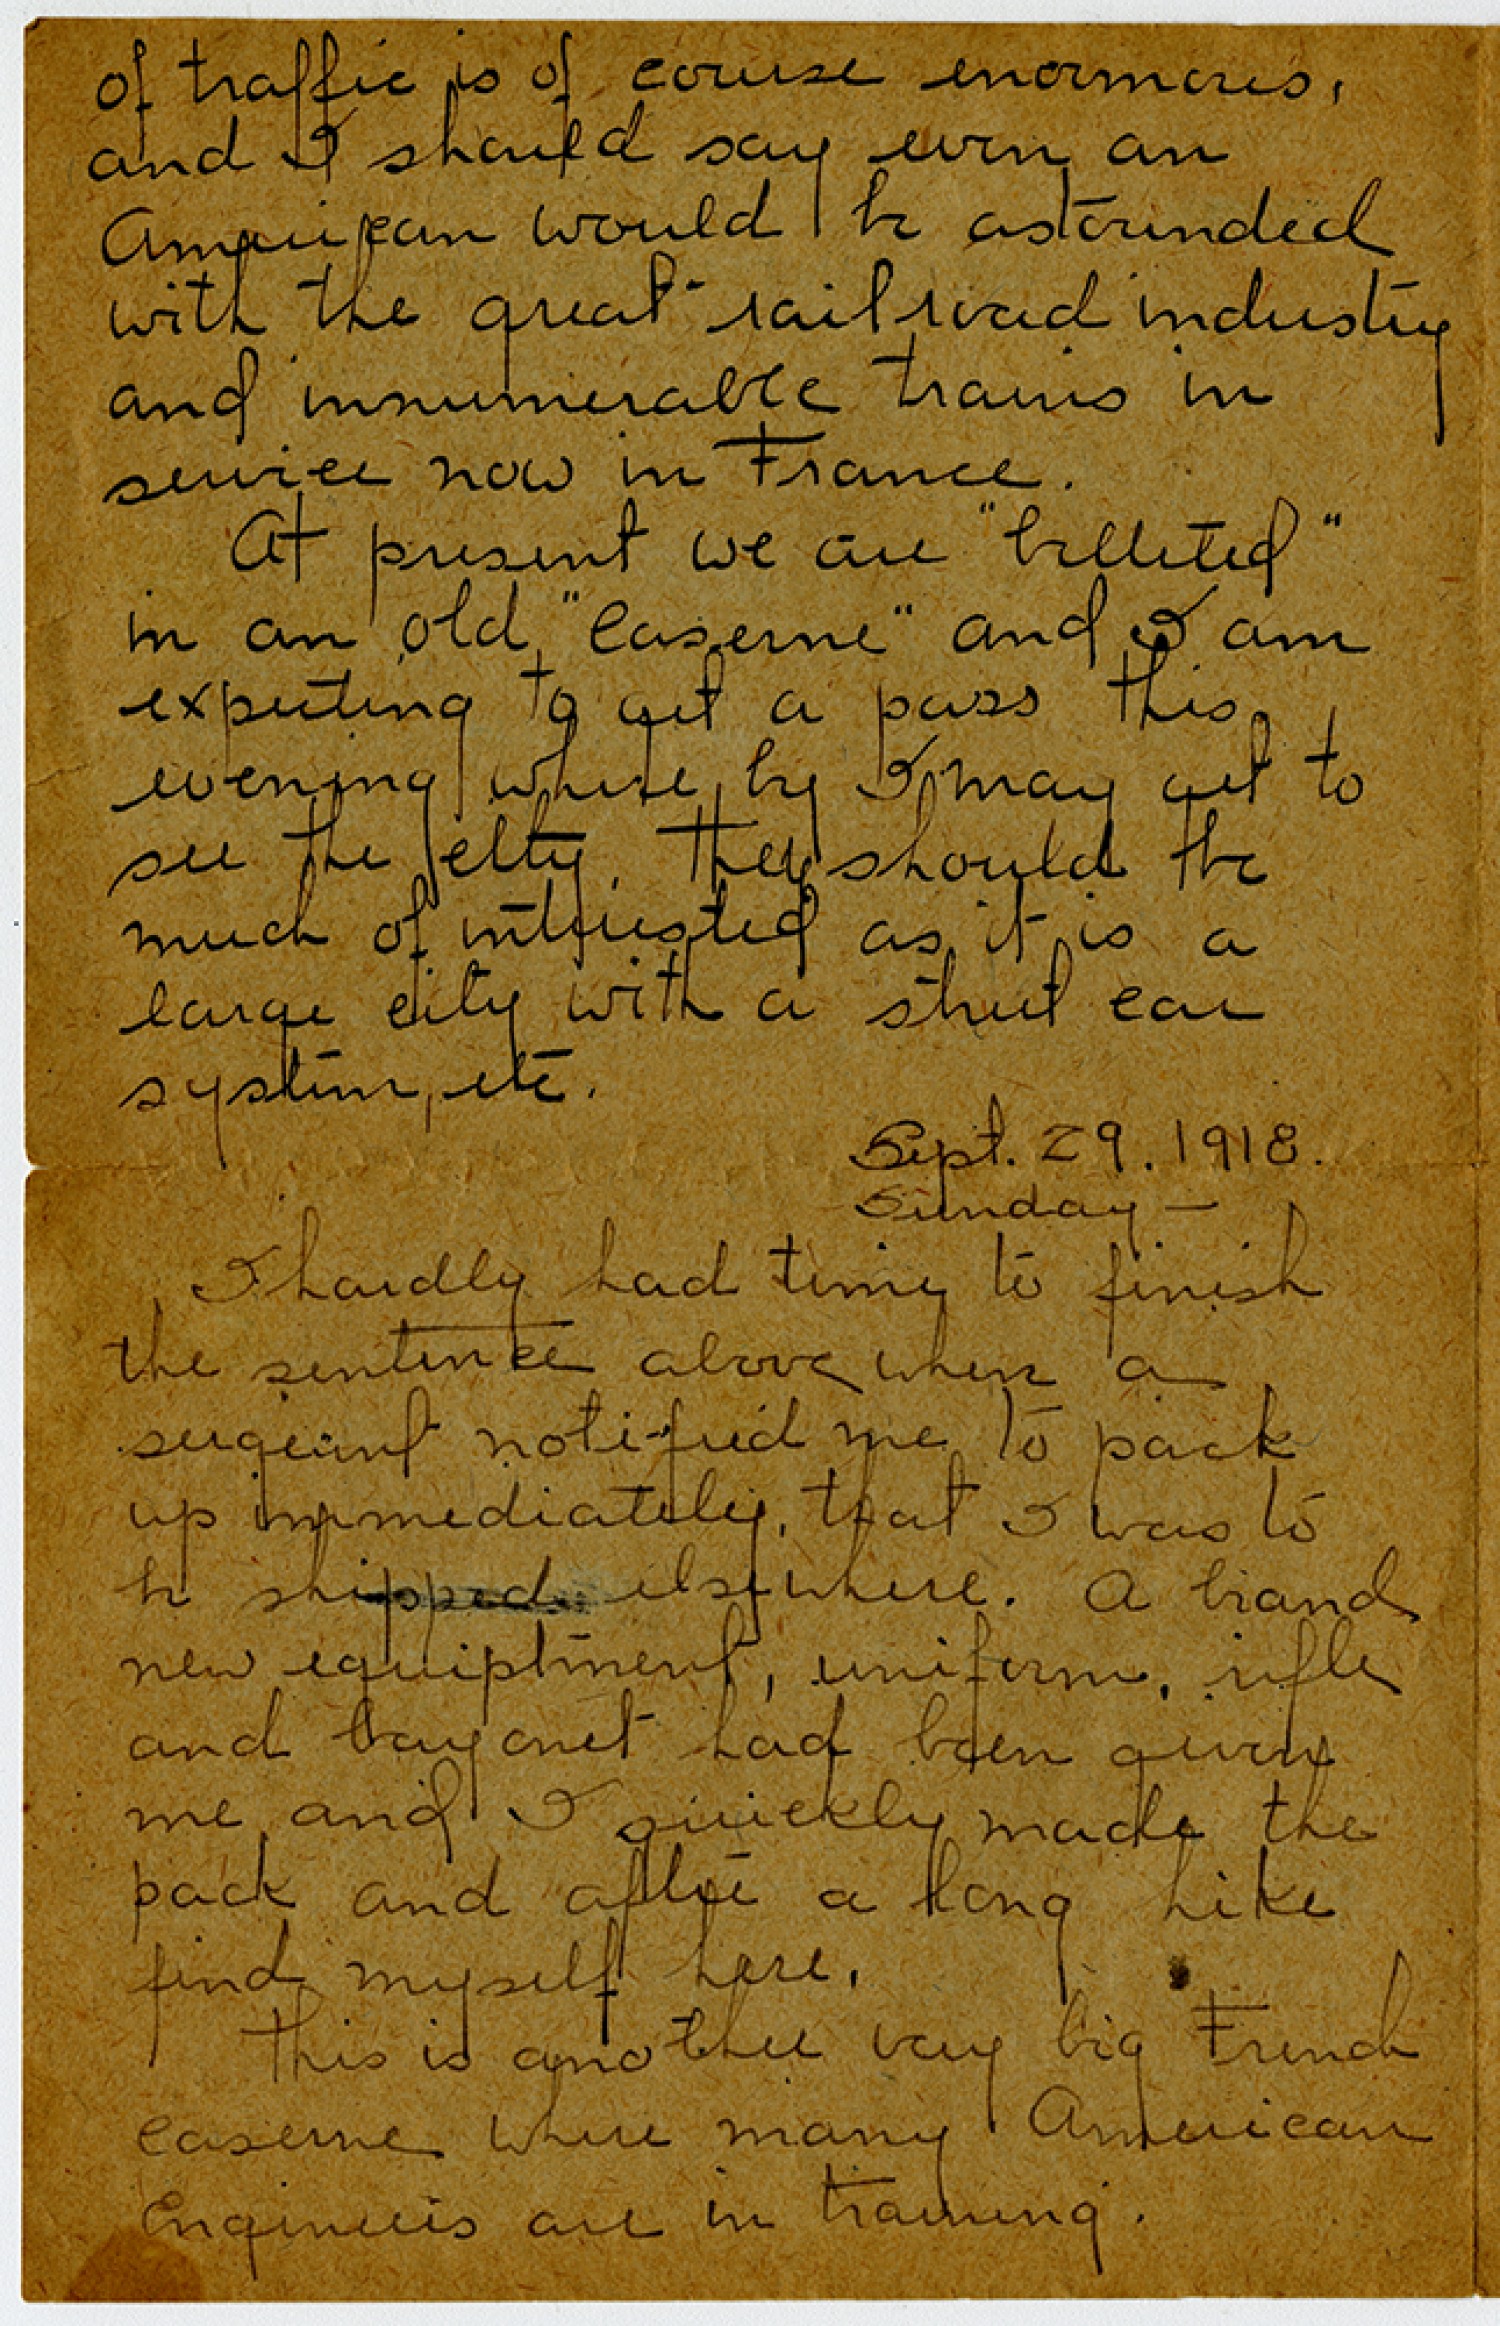 of traffic is of course enormous,
and I should say even an
American would be astounded
with the great railroad industry
and innumerable trains in
service now in France.
At present we are "billeted"
in an old "caserne" and I am
expecting to get a pass this
evening where by I may get to
see the city. They should be
much of interested as it is a
large city with a street car
system, etc.
Sept. 29. 1918.
Sunday —
I hardly had time to finish
the sentence above when a
sergeant notified me to pack
up immediately, that I was to
be shipped elsewhere. A brand
new equiptment, uniform, rifle
and bayonet had been given
me and I quickly made the
pack and after a long hike
find myself here.
This is another very big French
caserne where many American
Engineers are in training.